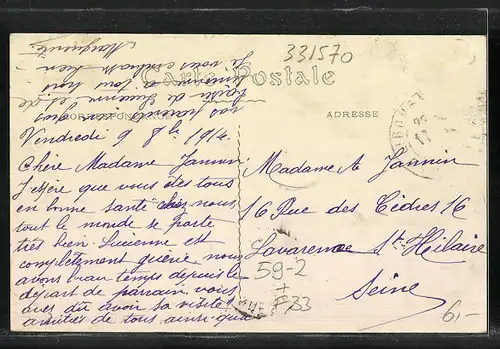 331570
Carte Postale
CORRESPONDANCE
ADRESSE
Vendredi 9 8bre 1914.
Chère Madame Jannin
J'espère que vous êtes tous
en bonne santé chez nous
tout le monde se porte
très bien. Lucienne est
complètement guérie, nous
avons beau temps depuis le
départ de parrain vous
avez dû avoir sa visite
amitiés de tous ainsi que
nos parents
baisers de Lucienne et de
Je vous embrasse bien
Marguerite
Madame A Jannin
16 Rue des Cèdres 16
Lavarenne St Hilaire
Seine
59-2
+
F33
6,-